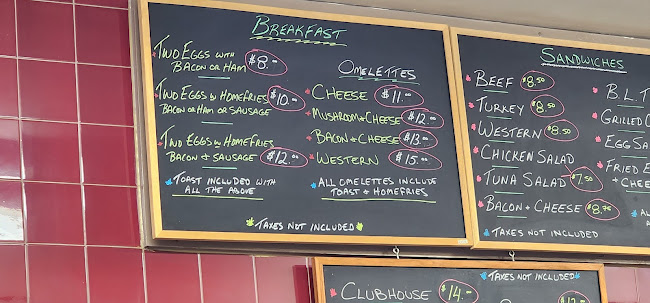 BREAKFAST
TWO EGGS WITH
BACON OR HAM $8.--
TWO EGGS W HOMEFRIES $10.--
BACON OR HAM OR SAUSAGE
TWO EGGS W HOMEFRIES
BACON + SAUSAGE $12.00
TOAST INCLUDED WITH
ALL THE ABOVE
OMELETTES
CHEESE $11.--
MUSHROOM + CHEESE $12.--
BACON + CHEESE $13.--
WESTERN $15.--
ALL OMELETTES INCLUDE
TOAST + HOMEFRIES
TAXES NOT INCLUDED
SANDWICHES
BEEF $8.50
TURKEY $8.50
WESTERN $8.50
CHICKEN SALAD
TUNA SALAD $7.50
BACON + CHEESE $8.75
TAXES NOT INCLUDED
B.L.T
GRILLED
EGG SA
FRIED E
+ CHEE
TAXES NOT INCLUDED
CLUBHOUSE $14.--